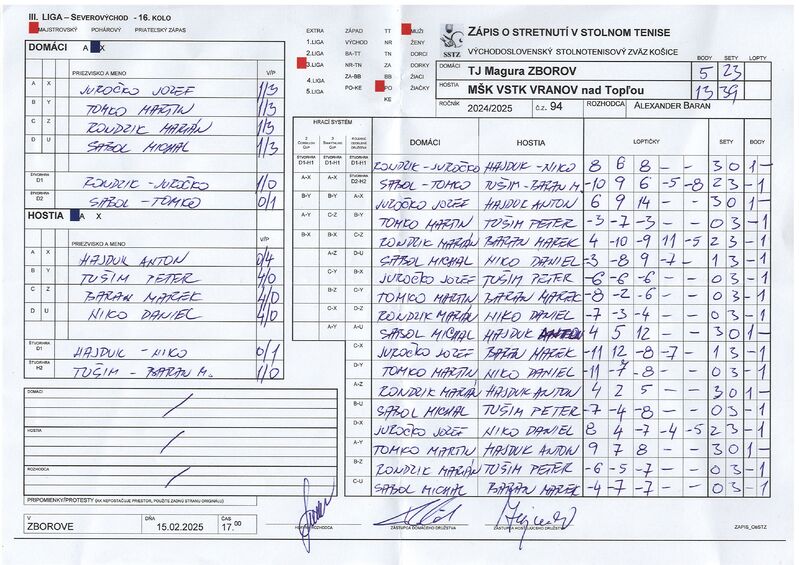 III. LIGA – SEVEROVÝCHOD - 16. KOLO
MAJSTROVSKÝ POHÁROVÝ PRIATEĽSKÝ ZÁPAS
EXTRA ZÁPAD TT MUŽI
1.LIGA VÝCHOD NR ŽENY
2.LIGA BA-TT TN DORCI
3.LIGA NR-TN ZA DORKY
4.LIGA ZA-BB BB ŽIACI
5.LIGA PO-KE PO ŽIAČKY
KE
SSTZ
ZÁPIS O STRETNUTÍ V STOLNOM TENISE
VÝCHODOSLOVENSKÝ STOLNOTENISOVÝ ZVÄZ KOŠICE
BODY SETY LOPTY
DOMÁCI TJ Magura ZBOROV 5 23
HOSTIA MŠK VSTK VRANOV nad Topľou 13 39
ROČNÍK 2024/2025 č.z. 94 ROZHODCA ALEXANDER BARAN
DOMÁCI A X
PRIEZVISKO A MENO V/P
A X JUROČKO JOZEF 1/3
B Y TOMKO MARTIN 1/3
C Z RONDZIK MARIÁN 1/3
D U SABOL MICHAL 1/3
ŠTVORHRA D1 RONDZIK - JUROČKO 1/0
ŠTVORHRA D2 SABOL - TOMKO 0/1
HOSTIA A X
PRIEZVISKO A MENO V/P
A X HAJDUK ANTON 0/4
B Y TUŠIM PETER 4/0
C Z BARAN MAREK 4/0
D U NIKO DANIEL 4/0
ŠTVORHRA D1 HAJDUK - NIKO 0/1
ŠTVORHRA H2 TUŠIM - BARAN M. 1/0
DOMÁCI
HOSTIA
ROZHODCA
PRIPOMIENKY/PROTESTY (AK NEPOSTAČUJE PRIESTOR, POUŽITE ZADNÚ STRANU ORIGINÁLU)
V ZBOROVE DŇA 15.02.2025 ČAS 17.00
HRACÍ SYSTÉM
DOMÁCI HOSTIA LOPTIČKY SETY BODY
ŠTVORHRA D1-H1 ŠTVORHRA D1-H1 ŠTVORHRA D1-H1 RONDZIK - JUROČKO HAJDUK - NIKO 8 6 8 - - 3 0 1 -
A-X A-X ŠTVORHRA D2-H2 SABOL - TOMKO TUŠIM - BARAN M. -10 9 6 -5 -8 2 3 - 1
B-Y B-Y A-X JUROČKO JOZEF HAJDUK ANTON 6 9 14 - - 3 0 1 -
A-Y C-Z B-Y TOMKO MARTIN TUŠIM PETER -3 -7 -3 - - 0 3 - 1
B-X B-X C-Z RONDZIK MARIÁN BARAN MAREK 4 -10 -9 11 -5 2 3 - 1
A-Z D-U SABOL MICHAL NIKO DANIEL -3 -8 9 -7 - 1 3 - 1
C-Y B-X JUROČKO JOZEF TUŠIM PETER -6 -6 -6 - - 0 3 - 1
B-Z C-Y TOMKO MARTIN BARAN MAREK -8 -2 -6 - - 0 3 - 1
C-X D-Z RONDZIK MARIÁN NIKO DANIEL -7 -3 -4 - - 0 3 - 1
A-Y A-U SABOL MICHAL HAJDUK ANTON 4 5 12 - - 3 0 1 -
C-X JUROČKO JOZEF BARAN MAREK -11 12 -8 -7 - 1 3 - 1
D-Y TOMKO MARTIN NIKO DANIEL -11 -7 -8 - - 0 3 - 1
A-Z RONDZIK MARIÁN HAJDUK ANTON 4 2 5 - - 3 0 1 -
B-U SABOL MICHAL TUŠIM PETER -7 -4 -8 - - 0 3 - 1
D-X JUROČKO JOZEF NIKO DANIEL 8 4 -7 -4 -5 2 3 - 1
A-Y TOMKO MARTIN HAJDUK ANTON 9 7 8 - - 3 0 1 -
B-Z RONDZIK MARIÁN TUŠIM PETER -6 -5 -7 - - 0 3 - 1
C-U SABOL MICHAL BARAN MAREK -4 -7 -7 - - 0 3 - 1
ZÁSTUPCA DOMÁCEHO DRUŽSTVA ZÁSTUPCA HOSŤUJÚCEHO DRUŽSTVA ZAPIS_OeSTZ